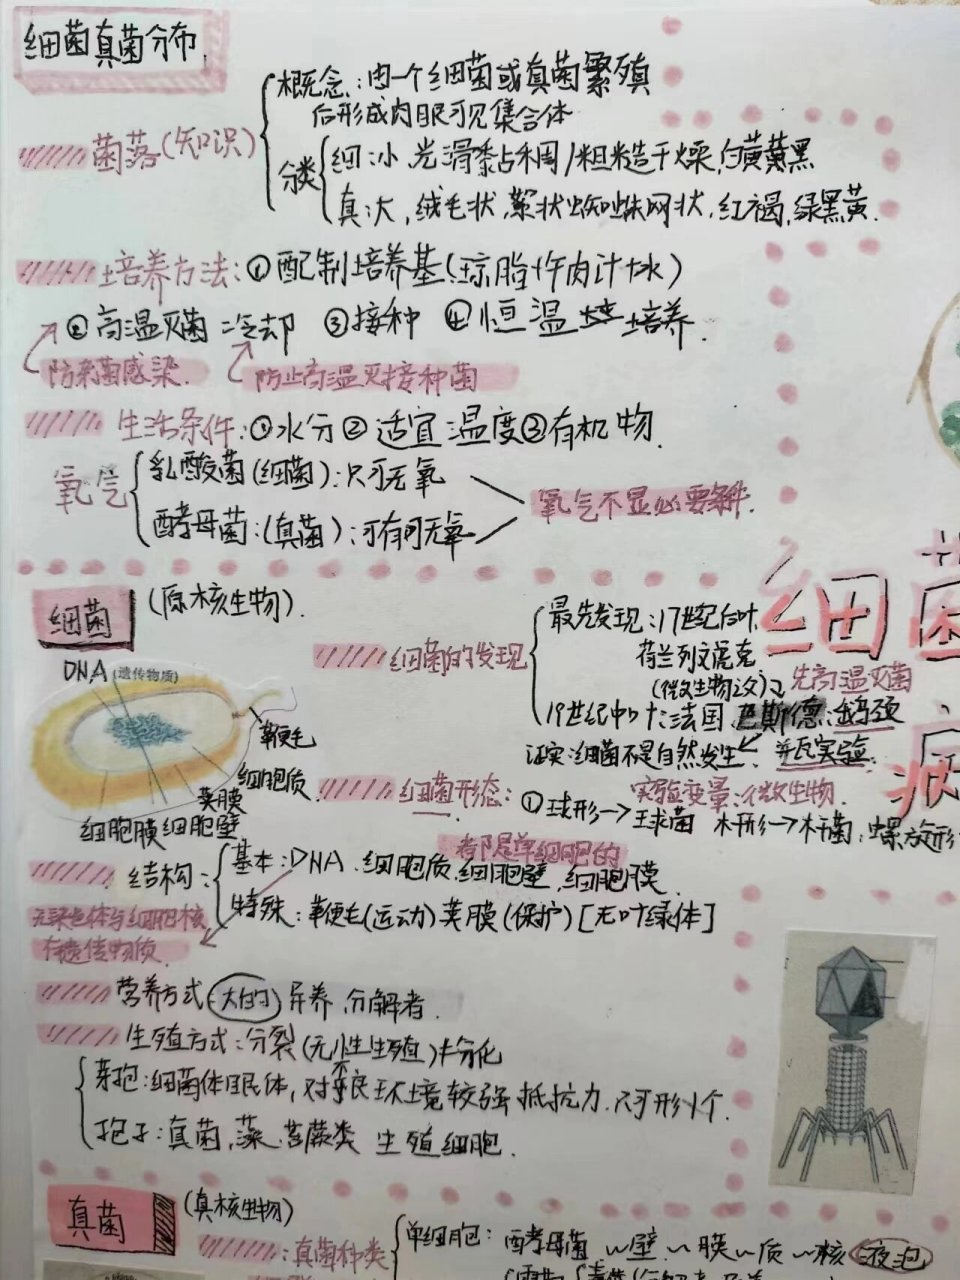 细菌真菌分布
概念:由一个细菌或真菌繁殖
后形成肉眼可见集合体
菌落(知识)
分类
细:小,光滑黏占稠/粗糙干燥,白黄黑
真:大,绒毛状,絮状蜘蛛网状,红褐,绿黑黄.
培养方法:①配制培养基(琼脂牛肉汁水)
②高温灭菌 冷却 ③接种 ④恒温培养.
防杂菌感染. 防止高温灭接种菌
生活条件:①水分②适宜温度③有机物.
氧气
乳酸菌(细菌):只可无氧
酵母菌:(真菌):可有可无氧
氧气不是必要条件.
细菌 (原核生物).
DNA(遗传物质)
鞭毛
细胞质
荚膜
细胞膜 细胞壁
细菌的发现
最先发现:17世纪后叶
荷兰列文虎克
(微生物之父)
先高温灭菌
19世纪中叶法国.巴斯德:鹅颈
证实:细菌不是自然发生 并瓦实验.
细菌形态:
实验变量:微生物.
①球形→球菌 杆形→杆菌,螺旋形
都是单细胞的
结构:
基本:DNA.细胞质.细胞壁.细胞膜.
特殊:鞭毛(运动)荚膜(保护)[无叶绿体]
无染色体与细胞核
有遗传物质.
营养方式(大的)异养 分解者.
生殖方式:分裂(无性生殖)≠分化
芽孢:细菌休眠体,对不良环境较强抵抗力.只可形1个.
孢子:真菌,藻.苔蕨类 生殖细胞.
真菌 (真核生物)
:真菌种类
单细胞: 酵母菌 壁 膜 质 核 液泡
细菌
病